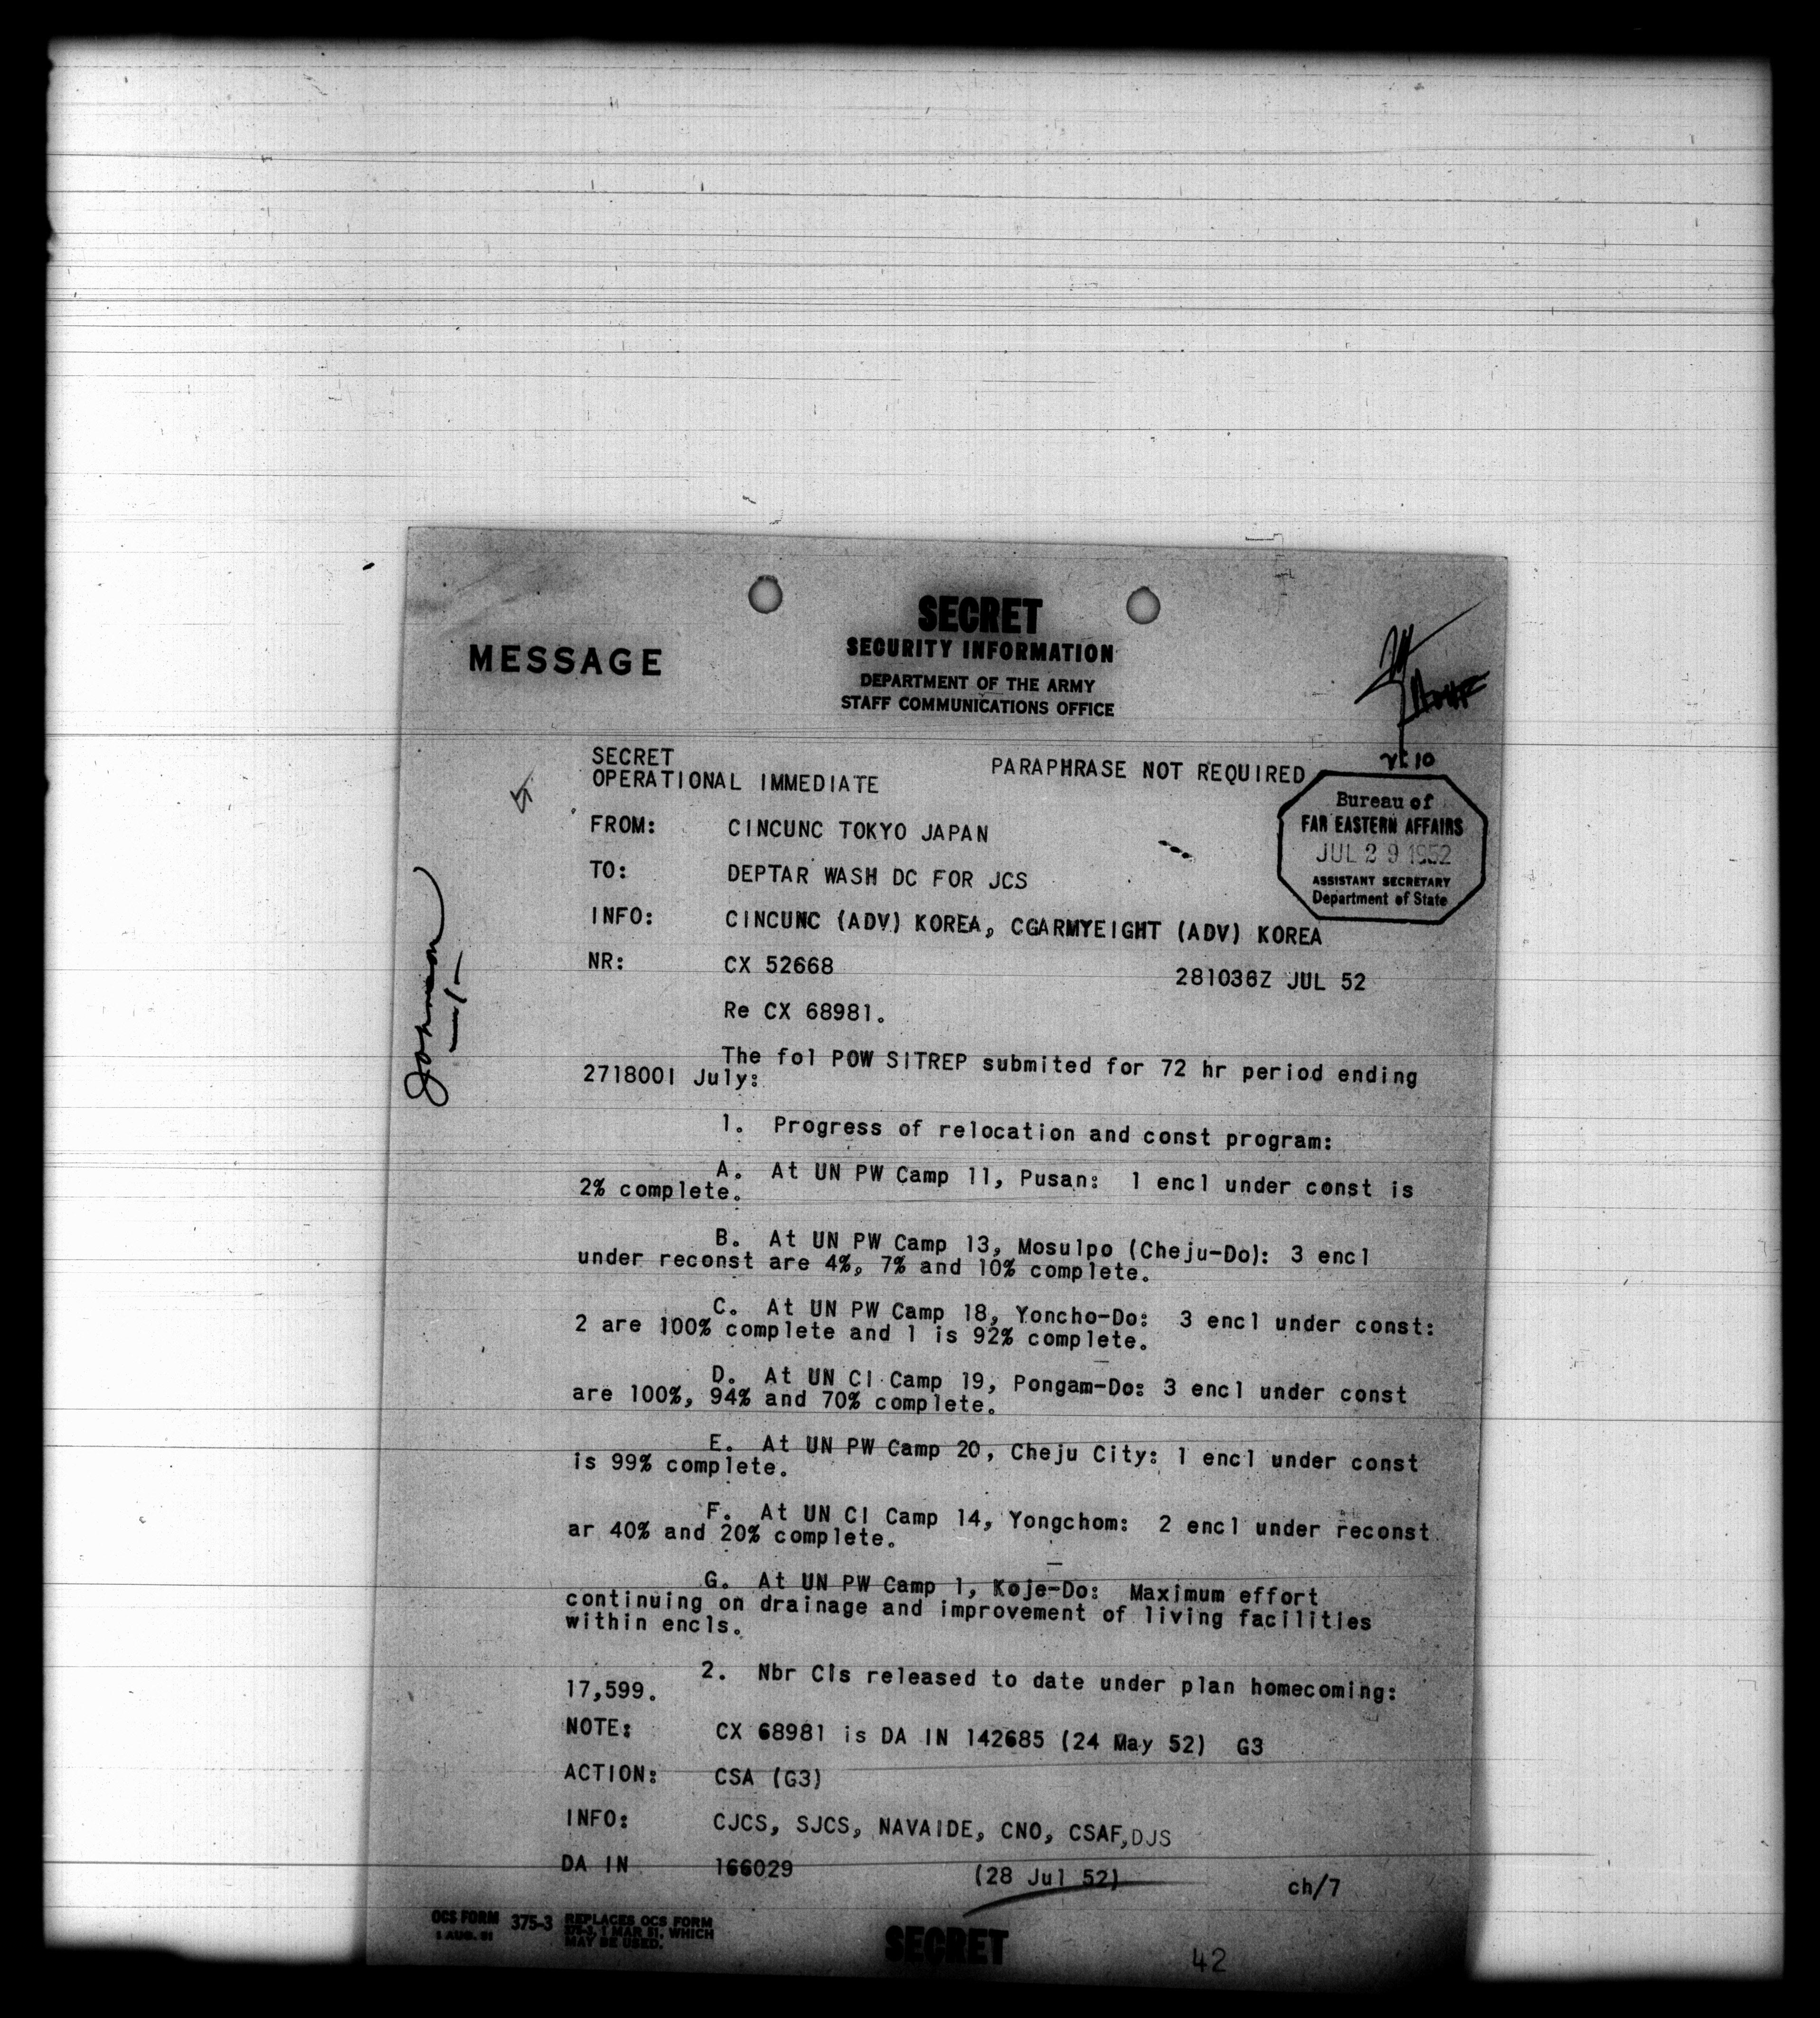 SECRET
SECURITY INFORMATION
MESSAGE
DEPARTMENT OF THE ARMY
STAFF COMMUNICATIONS OFFICE
SECRET
OPERATIONAL IMMEDIATE
PARAPHRASE NOT REQUIRED
Bureau of
FAR EASTERN AFFAIRS
JUL 29 1952
ASSISTANT SECRETARY
Department of State
FROM: CINCUNC TOKYO JAPAN
TO: DEPTAR WASH DC FOR JCS
INFO: CINCUNC (ADV) KOREA, CGARMYEIGHT (ADV) KOREA
NR: CX 52668 281036Z JUL 52
Johnson
Re CX 68981.
The fol POW SITREP submited for 72 hr period ending
271800I July:
1. Progress of relocation and const program:
A. At UN PW Camp 11, Pusan: 1 encl under const is
2% complete.
B. At UN PW Camp 13, Mosulpo (Cheju-Do): 3 encl
under reconst are 4%, 7% and 10% complete.
C. At UN PW Camp 18, Yoncho-Do: 3 encl under const:
2 are 100% complete and 1 is 92% complete.
D. At UN CI Camp 19, Pongam-Do: 3 encl under const
are 100%, 94% and 70% complete.
E. At UN PW Camp 20, Cheju City: 1 encl under const
is 99% complete.
F. At UN CI Camp 14, Yongchom: 2 encl under reconst
ar 40% and 20% complete.
G. At UN PW Camp 1, Koje-Do: Maximum effort
continuing on drainage and improvement of living facilities
within encls.
2. Nbr CIs released to date under plan homecoming:
17,599.
NOTE: CX 68981 is DA IN 142685 (24 May 52) G3
ACTION: CSA (G3)
INFO: CJCS, SJCS, NAVAIDE, CNO, CSAF, DJS
DA IN 166029 (28 Jul 52) ch/7
OCS FORM 375-3 REPLACES OCS FORM
1 AUG. 51 375-3, 1 MAR 51, WHICH
MAY BE USED.
SECRET
42